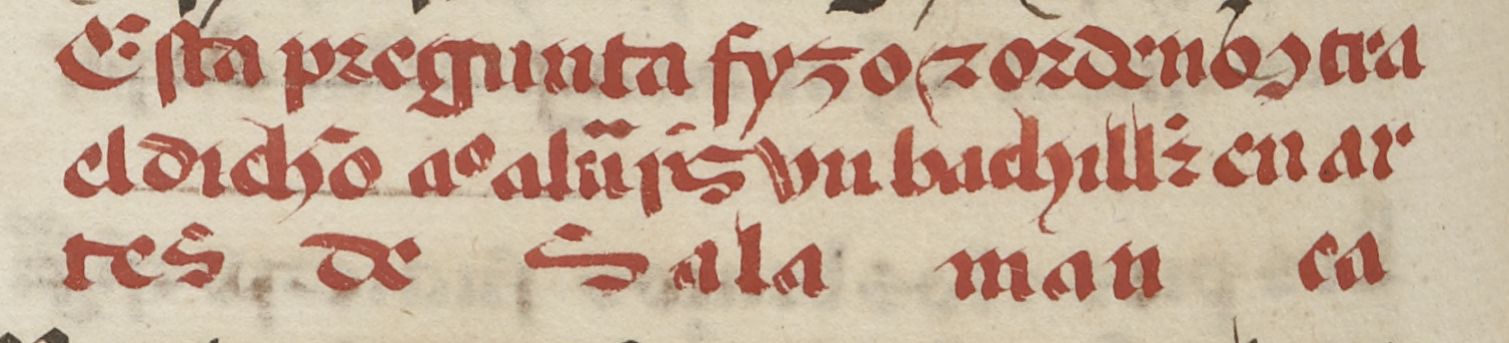 Esta pregunta fyzo ⁊ ordeno ꝯtra
el dicho aº aluȷ̃s vn bachillr̃ en ar
tes de Sala man ca